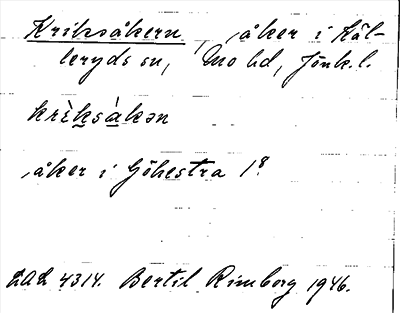 Kriksåkern, åker i Käl-
leryds sn, Mo hd, Jönk. l.
krìksàkən
åker i Göhestra 1⁸
LAL 4314. Bertil Rimborg 1946.